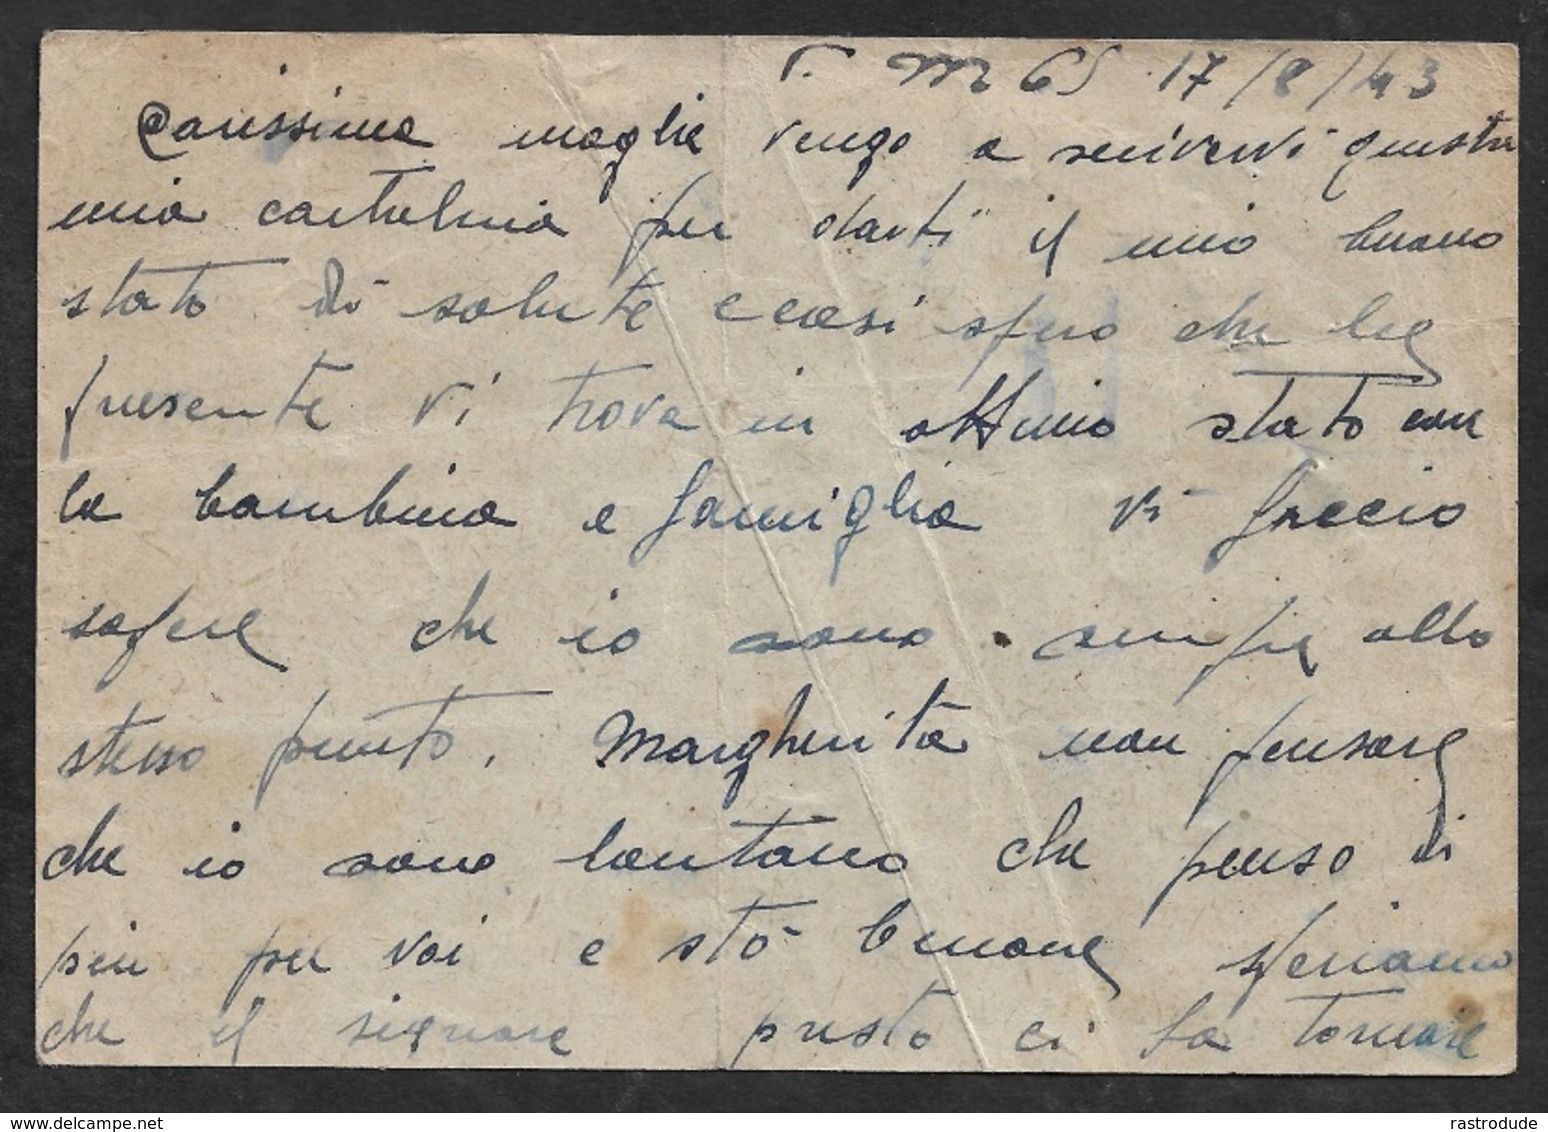 P. M 65 17/8/43
Carissima moglie vengo a scivervi questa
mia cartolina per darti il mio buono
stato di salute e cosi spero che la
presente vi trova in ottimo stato con
la bambina e famiglia vi faccio
sapere che io sono sempre allo
stesso punto. Margherita non pensare
che io sono lontano che penso di
piu per voi e stò benone speriamo
che il signore presto ci fa tornare
rastrodude